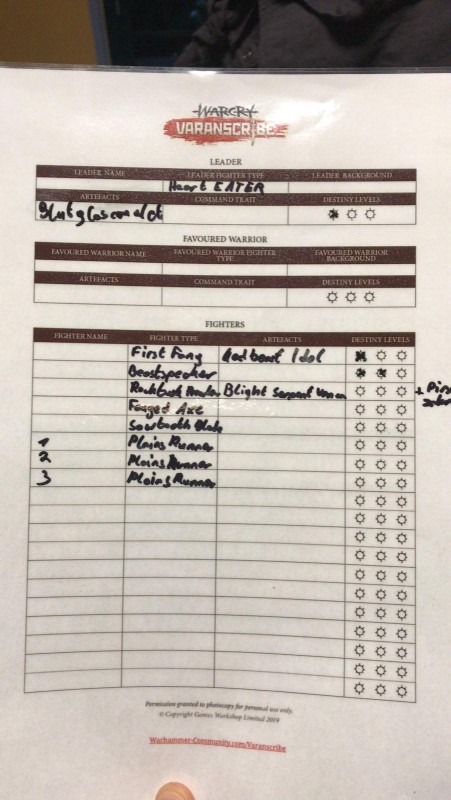 WARCRY
VARANSCRIBE
LEADER
LEADER NAME LEADER FIGHTER TYPE LEADER BACKGROUND
Heart EATER
ARTEFACTS COMMAND TRAIT DESTINY LEVELS
FAVOURED WARRIOR
FAVOURED WARRIOR NAME FAVOURED WARRIOR FIGHTER TYPE FAVOURED WARRIOR BACKGROUND
ARTEFACTS COMMAND TRAIT DESTINY LEVELS
FIGHTERS
FIGHTER NAME FIGHTER TYPE ARTEFACTS DESTINY LEVELS
First Fang Idol
Beastspeaker
Blight Serpent
Axe
Sawtooth
1 Plains Runner
2 Plains Runner
3 Plains Runner
Permission granted to photocopy for personal use only.
© Copyright Games Workshop Limited 2019
Warhammer-Community.com/Varanscribe